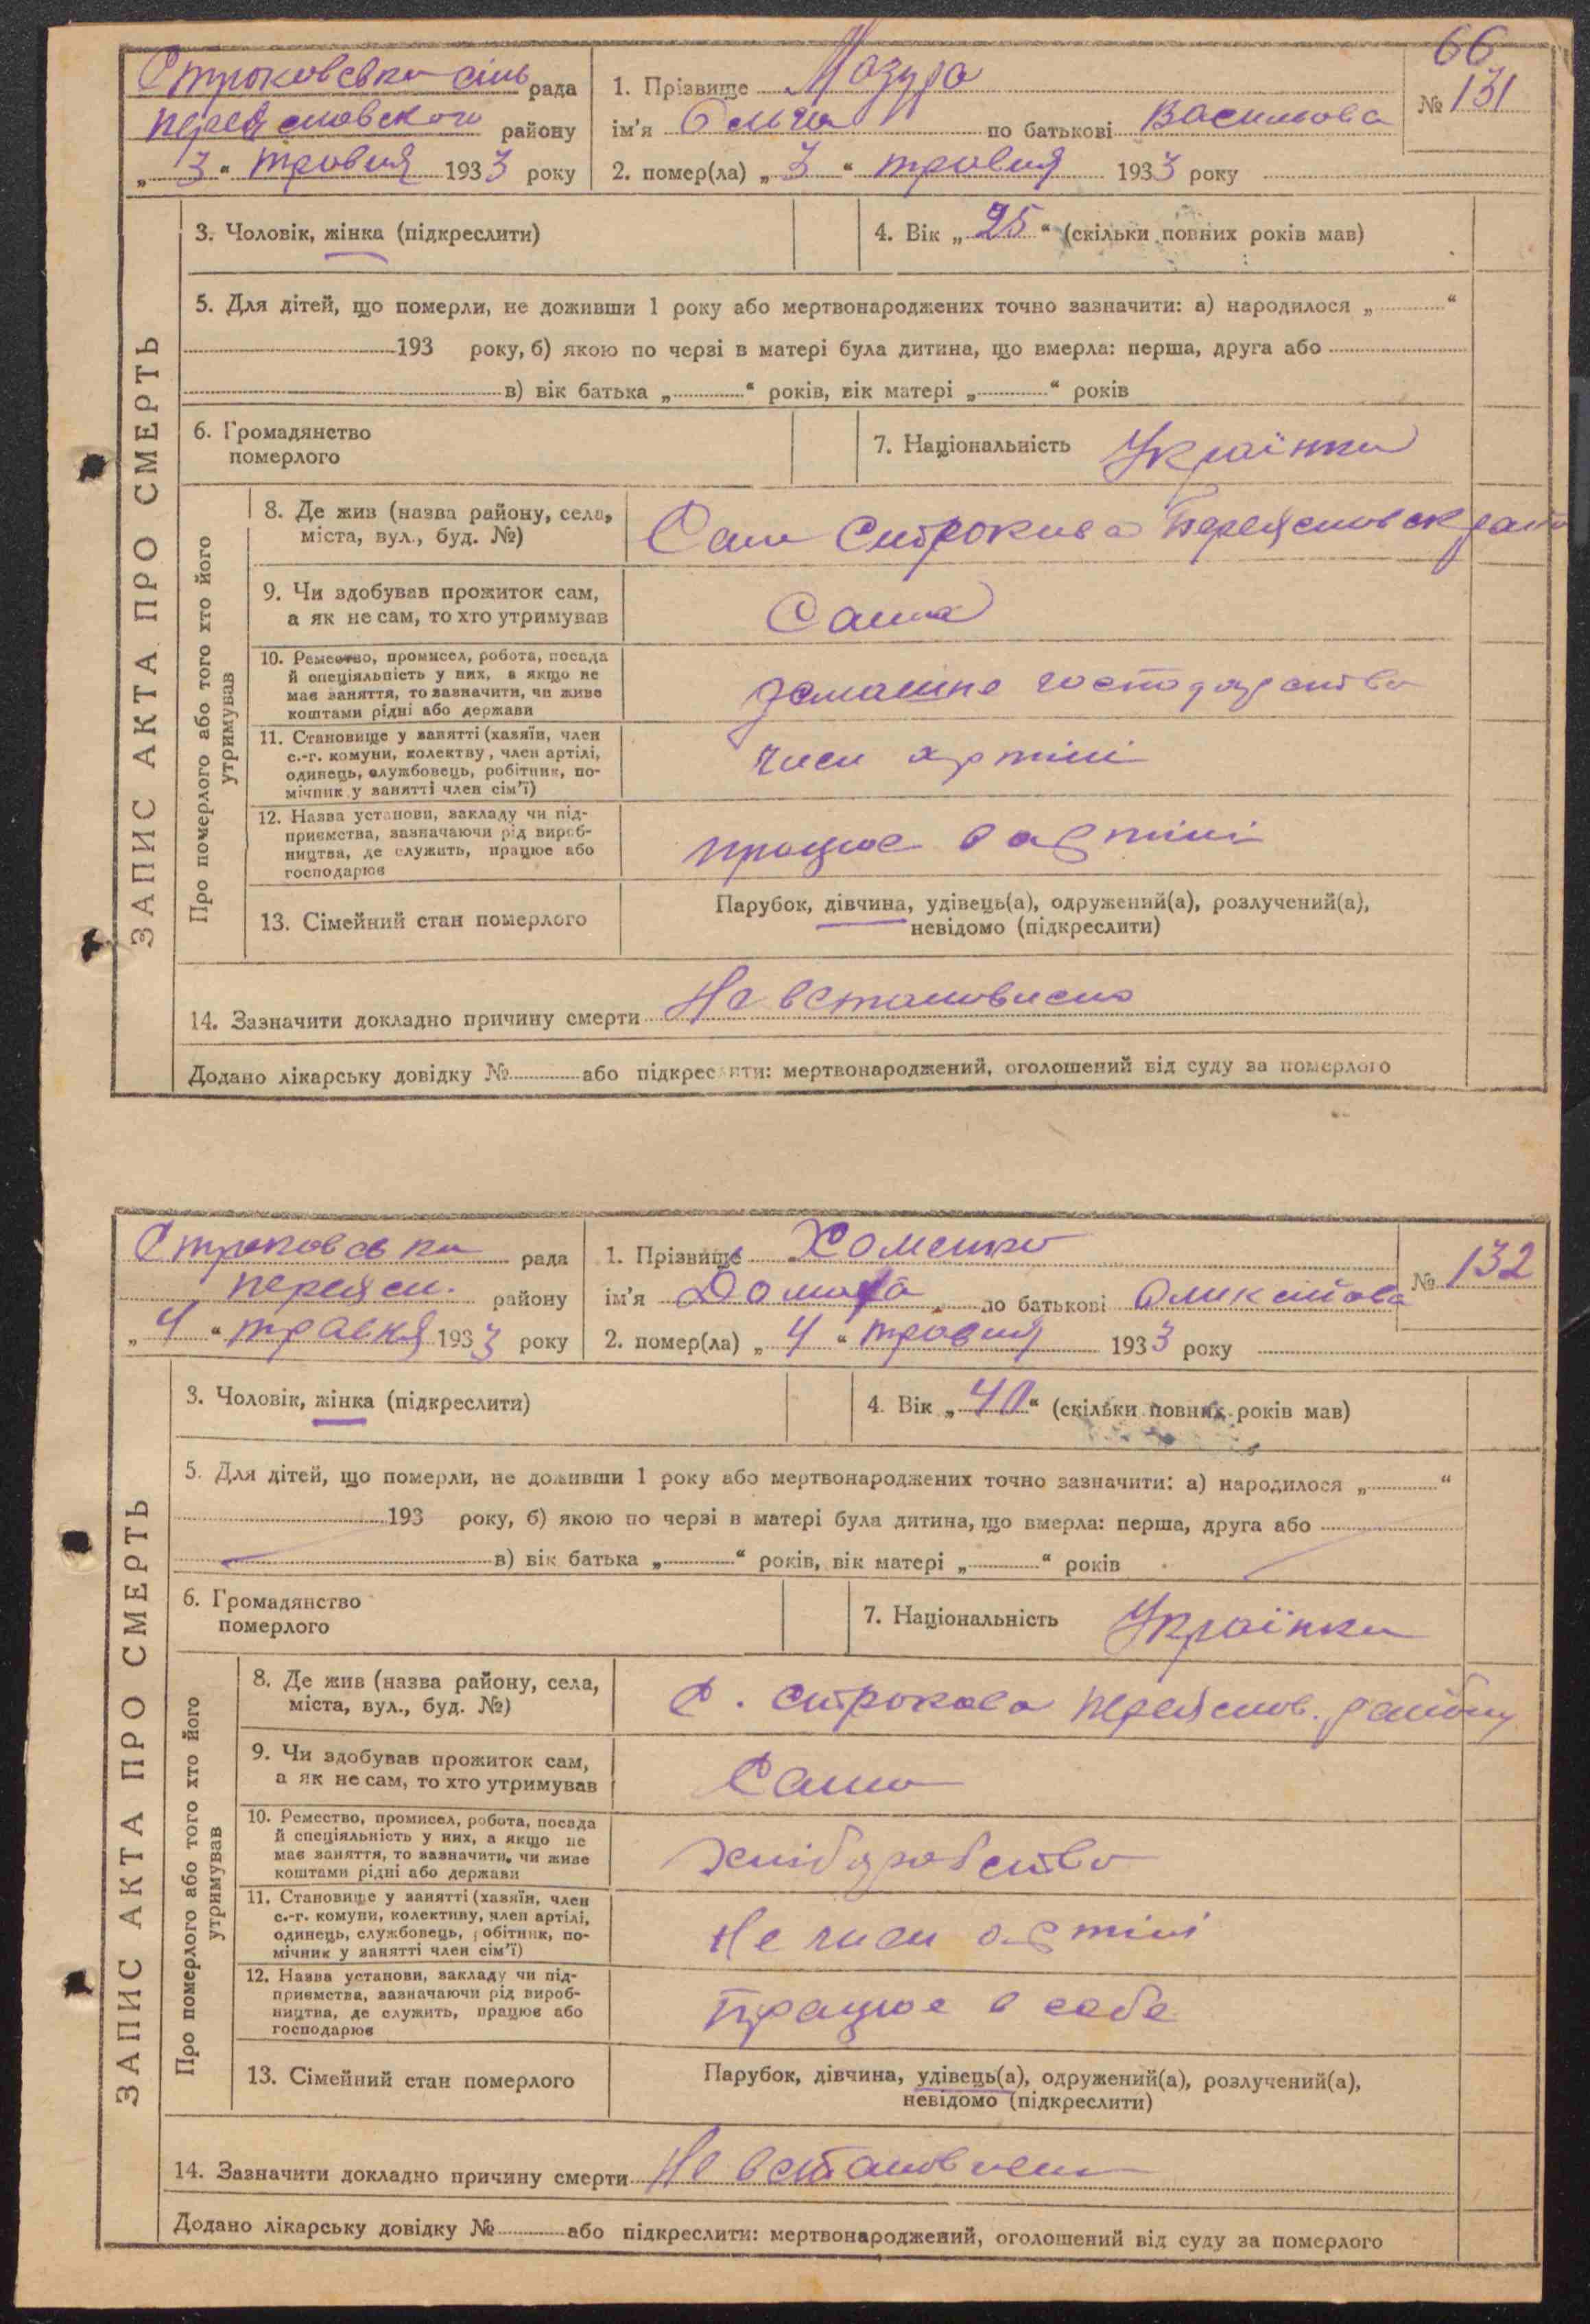 66
Строковська сіль рада
Переяславского району
„ 3 “ травня 1933 року
1. Прізвище Мазура
ім'я Ольга по батькові Василова
2. помер(ла) „ 3 “ травня 1933 року
№ 131
ЗАПИС АКТА ПРО СМЕРТЬ
3. Чоловік, жінка (підкреслити)
4. Вік „ 25 “ (скільки повних років мав)
5. Для дітей, що померли, не доживши 1 року або мертвонароджених точно зазначити: а) народилося „ “
193 року, б) якою по черзі в матері була дитина, що вмерла: перша, друга або
в) вік батька „ “ років, вік матері „ “ років
6. Громадянство
померлого
7. Національність Українка
Про померлого або того хто його
утримував
8. Де жив (назва району, села,
міста, вул., буд. №)
Село Строкова Переяславск
9. Чи здобував прожиток сам,
а як не сам, то хто утримував
Сама
10. Ремество, промисел, робота, посада
й спеціяльність у них, а якщо не
має заняття, то зазначити, чи живе
коштами рідні або держави
домашне господарство
11. Становище у занятті (хазяїн, член
с.-г. комуни, колектву, член артілі,
одинець, службовець, робітник, по-
мічник у занятті член сім'ї)
член артілі
12. Назва установи, закладу чи під-
приємства, зазначаючи рід вироб-
ництва, де служить, працює або
господарює
працює в артілі
13. Сімейний стан померлого
Парубок, дівчина, удівець(а), одружений(а), розлучений(а),
невідомо (підкреслити)
14. Зазначити докладно причину смерти Не встановлено
Додано лікарську довідку № або підкреслити: мертвонароджений, оголошений від суду за померлого
Строковська рада
Переясл. району
„ 4 “ травня 1933 року
1. Прізвище Хоменко
ім'я по батькові
2. помер(ла) „ 4 “ травня 1933 року
№ 132
ЗАПИС АКТА ПРО СМЕРТЬ
3. Чоловік, жінка (підкреслити)
4. Вік „ 40 “ (скільки повних років мав)
5. Для дітей, що померли, не доживши 1 року або мертвонароджених точно зазначити: а) народилося „ “
193 року, б) якою по черзі в матері була дитина, що вмерла: перша, друга або
в) вік батька „ “ років, вік матері „ “ років
6. Громадянство
померлого
7. Національність Українка
Про померлого або того хто його
утримував
8. Де жив (назва району, села,
міста, вул., буд. №)
С. Строкова Переяслов. району
9. Чи здобував прожиток сам,
а як не сам, то хто утримував
Сама
10. Ремество, промисел, робота, посада
й спеціяльність у них, а якщо не
має заняття, то зазначити, чи живе
коштами рідні або держави
Хліборобство
11. Становище у занятті (хазяїн, член
с.-г. комуни, колективу, член артілі,
одинець, службовець, робітник, по-
мічник у занятті член сім'ї)
Не член артілі
12. Назва установи, закладу чи під-
приємства, зазначаючи рід вироб-
ництва, де служить, працює або
господарює
Працює в себе
13. Сімейний стан померлого
Парубок, дівчина, удівець(а), одружений(а), розлучений(а),
невідомо (підкреслити)
14. Зазначити докладно причину смерти Не встановлено
Додано лікарську довідку № або підкреслити: мертвонароджений, оголошений від суду за померлого